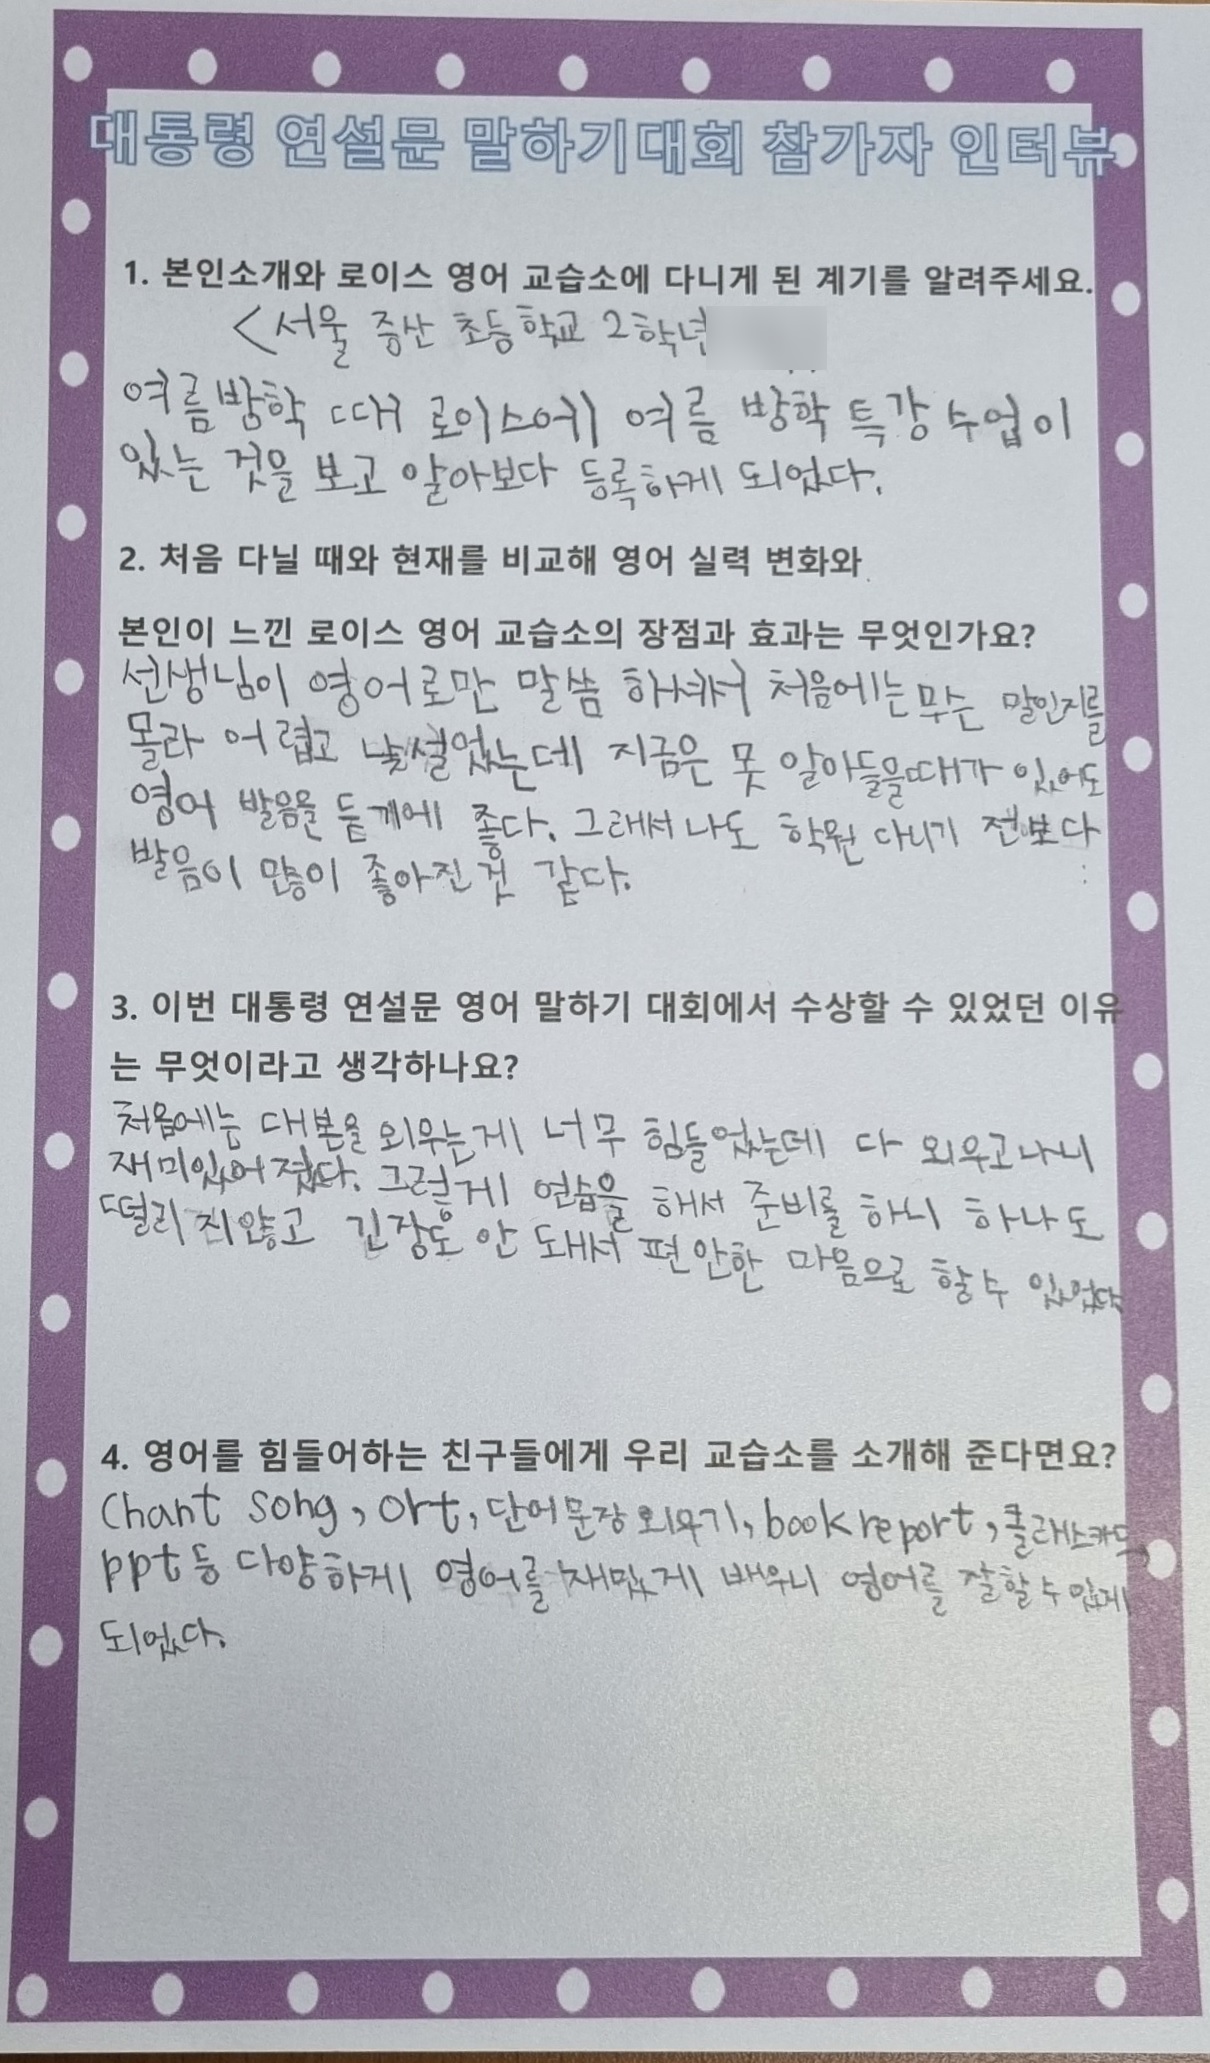 대통령 연설문 말하기대회 참가자 인터뷰
1. 본인소개와 로이스 영어 교습소에 다니게 된 계기를 알려주세요.
<서울 증산 초등학교 2학년
여름방학 때 로이스에 여름 방학 특강 수업이
있는 것을 보고 알아보다 등록하게 되었다.
2. 처음 다닐 때와 현재를 비교해 영어 실력 변화와
본인이 느낀 로이스 영어 교습소의 장점과 효과는 무엇인가요?
선생님이 영어로만 말씀 하셔서 처음에는 무슨 말인지를
몰라 어렵고 낯설었는데 지금은 못 알아들을때가 있어도
영어 발음을 듣게에 좋다. 그래서 나도 학원 다니기 전보다
발음이 많이 좋아진 것 같다.
3. 이번 대통령 연설문 영어 말하기 대회에서 수상할 수 있었던 이유
는 무엇이라고 생각하나요?
처음에는 대본을 외우는게 너무 힘들었는데 다 외우고나니
재미있어졌다. 그렇게 연습을 해서 준비를 하니 하나도
떨리지않고 긴장도 안 돼서 편안한 마음으로 할수 있었다
4. 영어를 힘들어하는 친구들에게 우리 교습소를 소개해 준다면요?
Chant song, ort, 단어문장 외우기, book report, 클래스카드,
ppt등 다양하게 영어를 재밌게 배우니 영어를 잘할수있게
되었다.